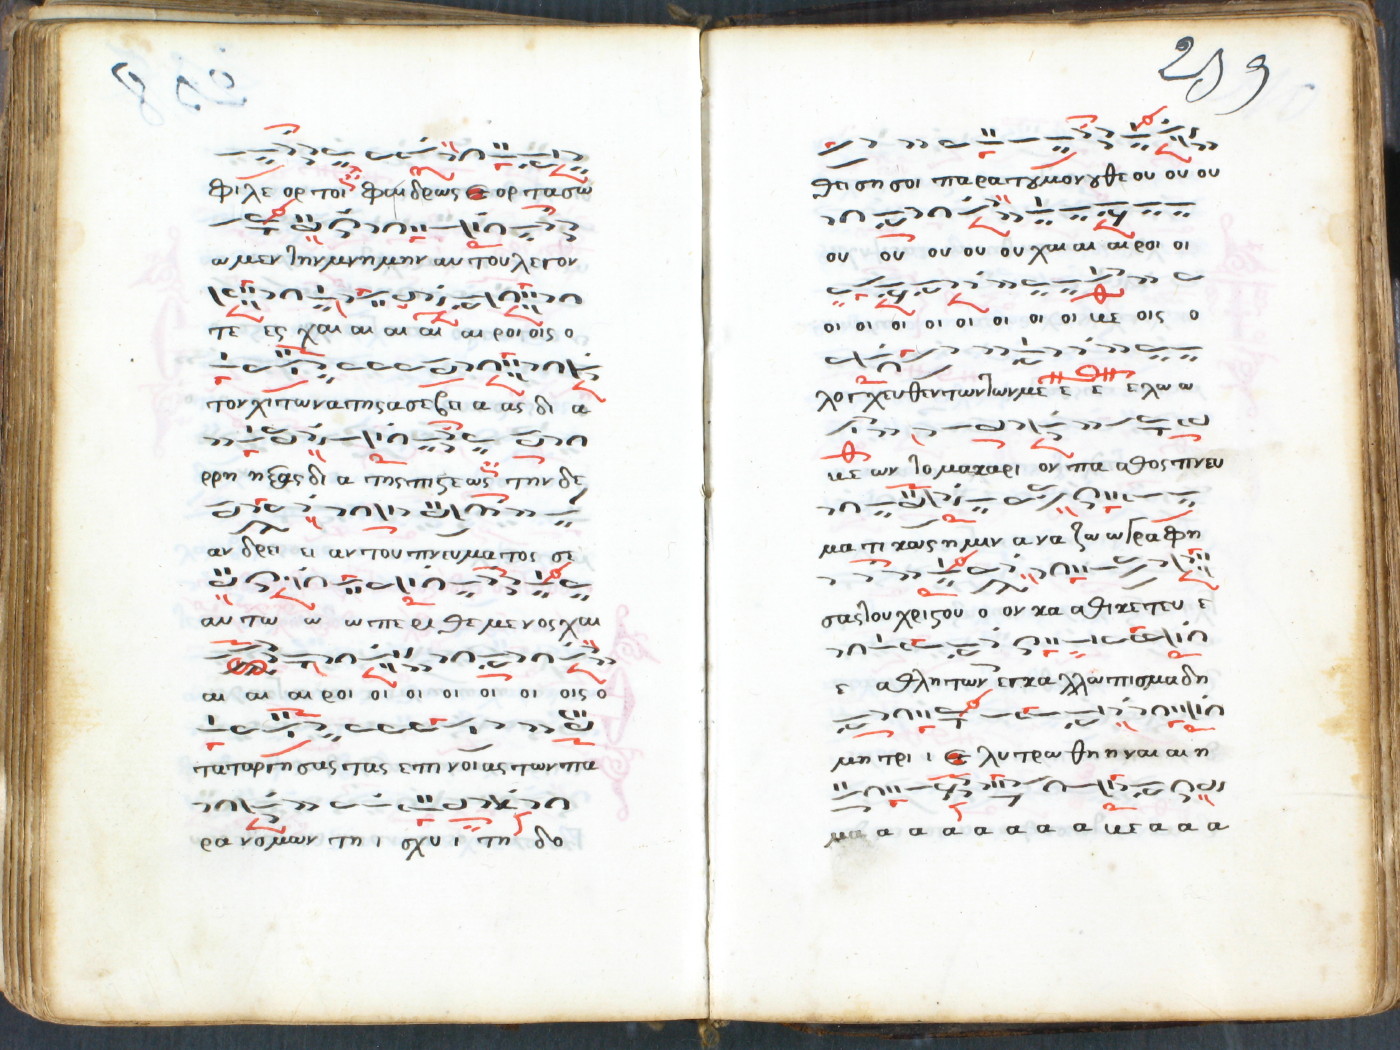 φι λε ορ τοι φαι δρως ε ορ τα σω
ω μεν την μνη μην αυ του λε γον
τε ες χαι αι αι αι αι ροι οις ο
τον χι τω να της α σε βει α ας δι α
ρρη η ξας δι α της πι στε ως την δε
αν δρει ει αν του πνευ μα τος σε
αυ τω ω ω πε ρι θε με νος χαι
αι αι αι ροι οι οι οι οι οι οις ο
τα ταρ γη σας τας ε πι νοι ας των πα
ρα νο μων τη ι σχυ ι τη δο
259
θει ση σοι πα ρα του μο νου θε ου ου ου
ου ου ου ου ου χαι αι αι ροι οι
οι οι οι οι οι οι οι οι νε οις ο
λογ χευ θεν των των με ε ε ε λω ω
νε ων το μα κα ρι ον πα α θος πνευ
μα τι κως η μιν α να ζω ω γρα φη
σας του χρι στου ο ον κα α θι κε τευ ε
ε α θλη των εγ κα λλω πι σμα δη
μη τρι ι ε λυ τρω θη η ναι αι η
μα α α α α α α α νε α α α